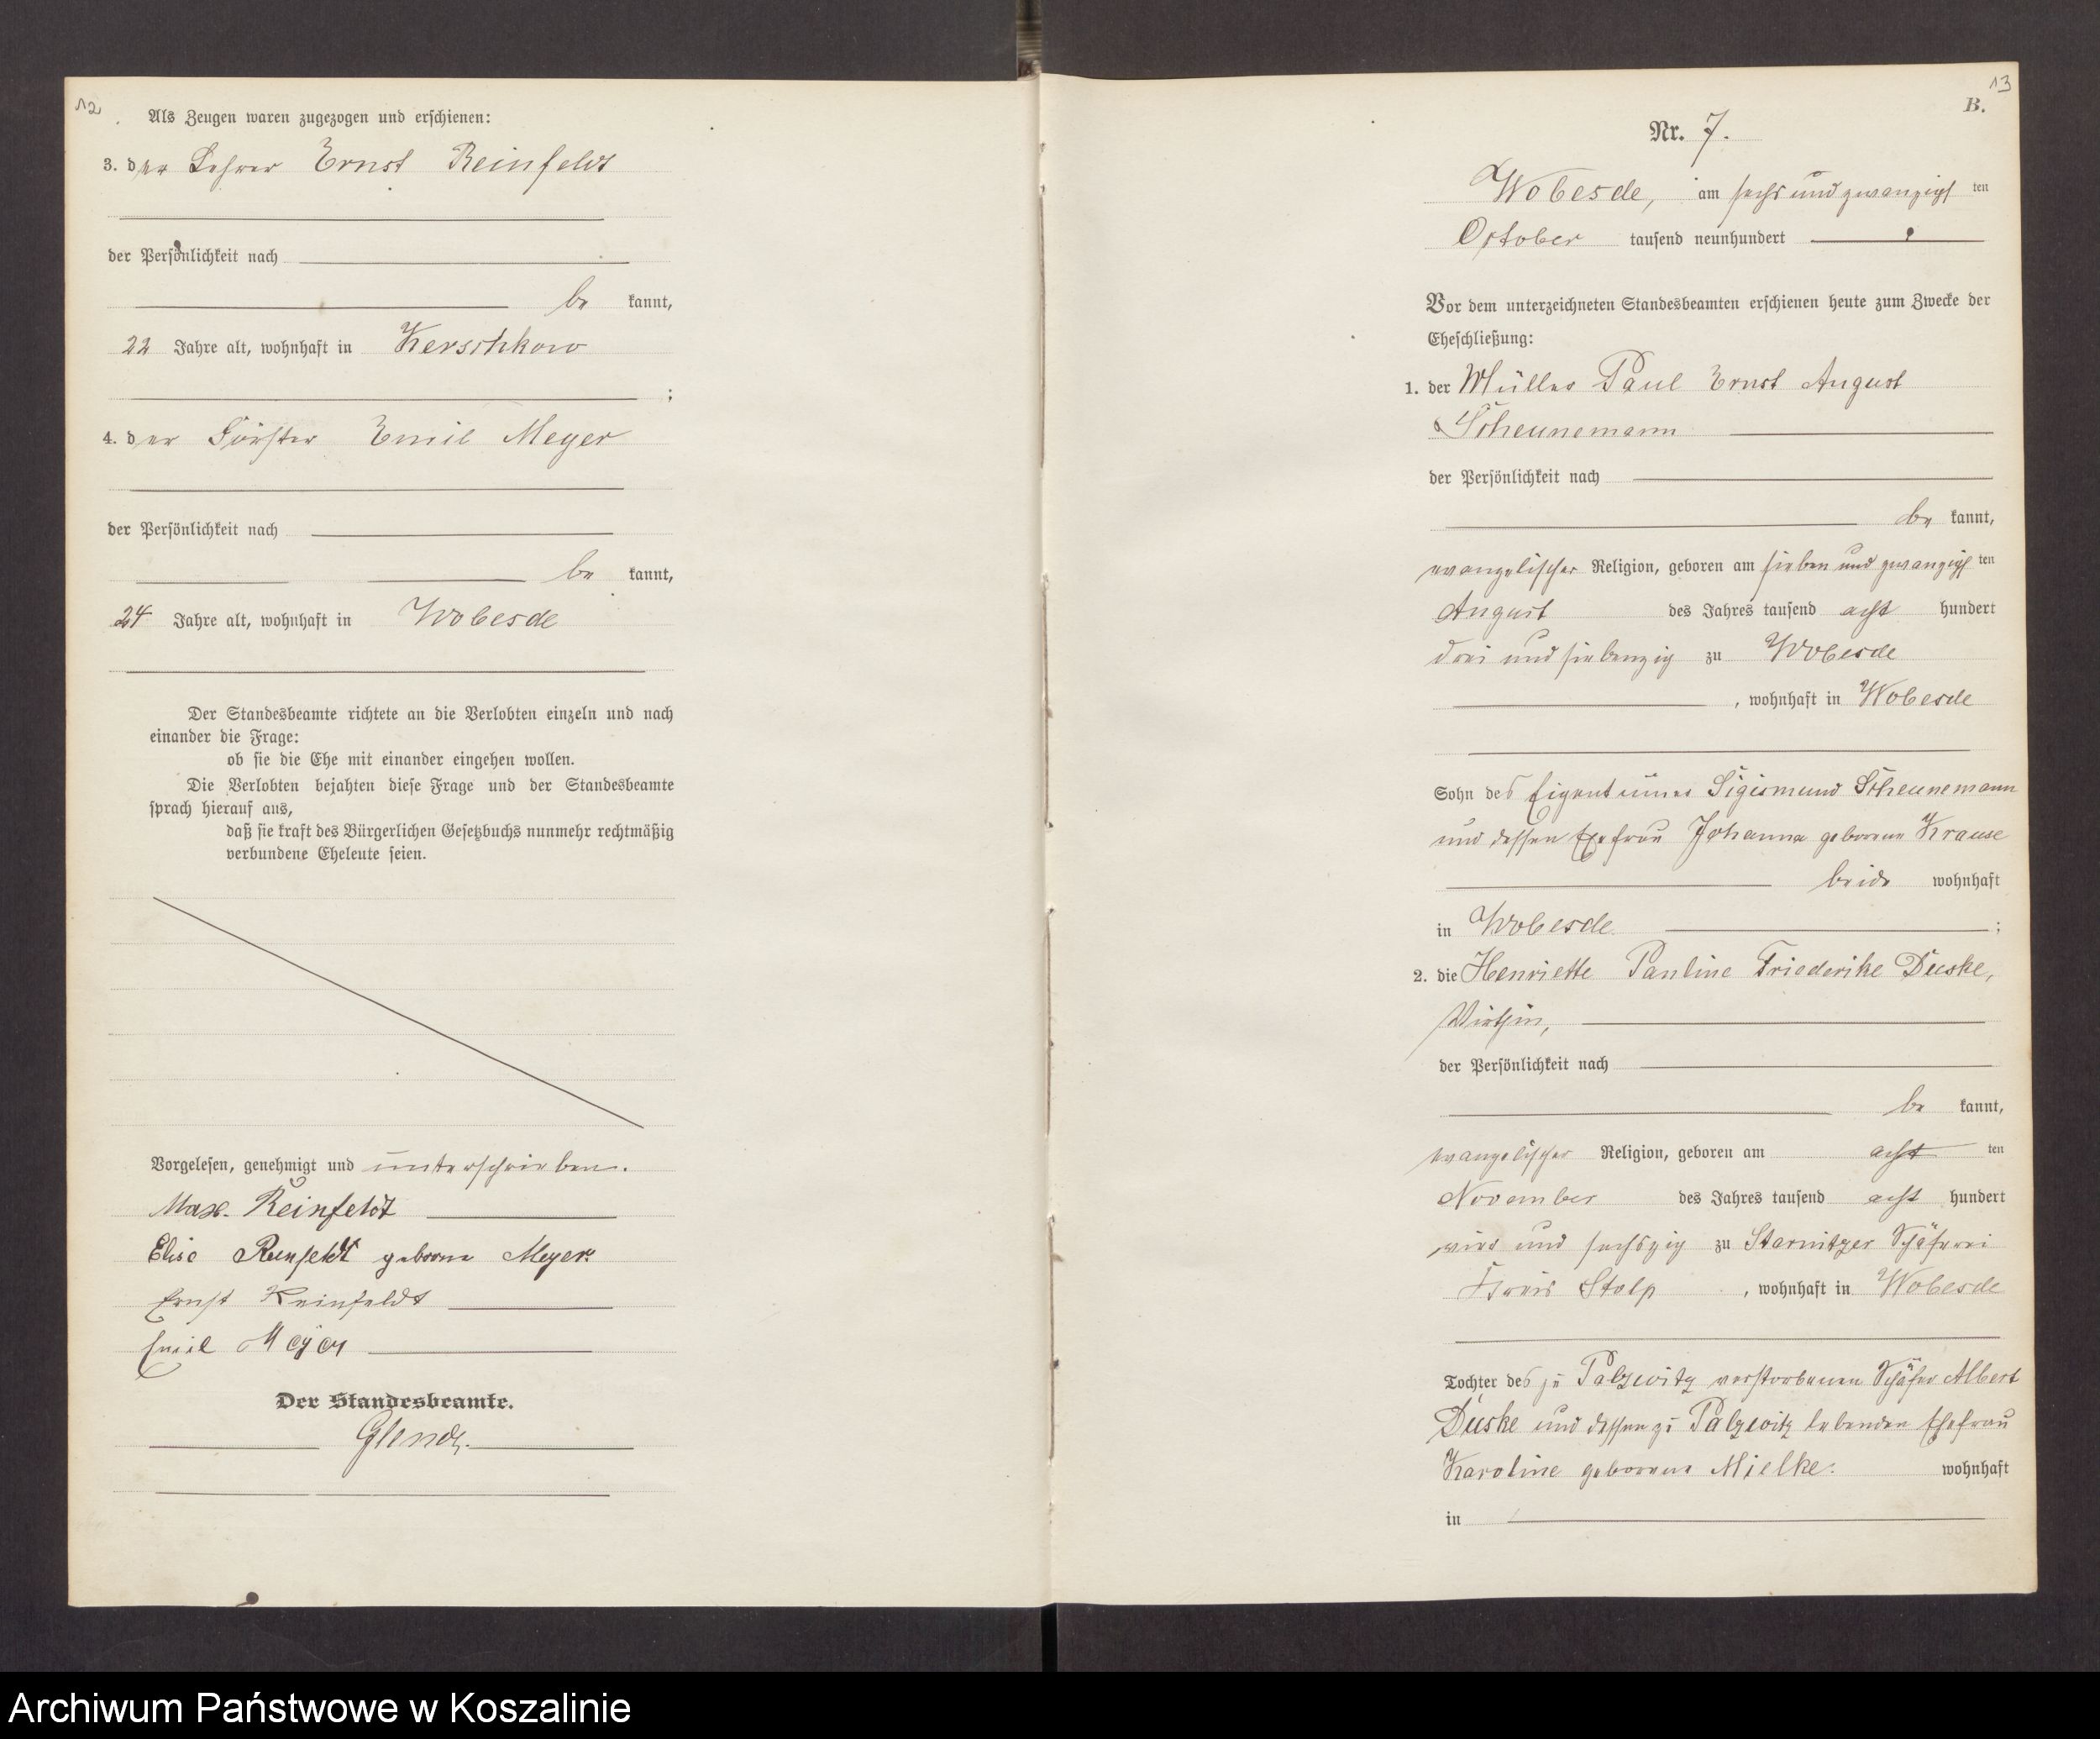 12
Als Zeugen waren zugezogen und erschienen:
3. der Lehrer Ernst Reinfeldt
der Persönlichkeit nach
be kannt,
22 Jahre alt, wohnhaft in Kerschkow
;
4. der Förster Emil Meyer
der Persönlichkeit nach
be kannt,
24 Jahre alt, wohnhaft in Wobesde
Der Standesbeamte richtete an die Verlobten einzeln und nach
einander die Frage:
ob sie die Ehe mit einander eingehen wollen.
Die Verlobten bejahten diese Frage und der Standesbeamte
sprach hierauf aus,
daß sie kraft des Bürgerlichen Gesetzbuchs nunmehr rechtmäßig
verbundene Eheleute seien.
Vorgelesen, genehmigt und unterschrieben.
Max Reinfeldt
Elise Reinfeldt geborene Meyer.
Ernst Reinfeldt
Emil Meyer
Der Standesbeamte.
13
B.
Nr. 7.
Wobesde, am sechs und zwanzigsten
October tausend neunhundert
Vor dem unterzeichneten Standesbeamten erschienen heute zum Zwecke der
Eheschließung:
1. der Müller Paul Ernst August
Scheunemann
der Persönlichkeit nach
be kannt,
evangelischer Religion, geboren am sieben und zwanzigsten
August des Jahres tausend acht hundert
drei und siebenzig zu Wobesde
, wohnhaft in Wobesde
Sohn des Eigentümers Sigismund Scheunemann
und dessen Ehefrau Johanna geborene Krause
beide wohnhaft
in Wobesde ;
2. die Henriette Pauline Friederike Duske,
Wirthin,
der Persönlichkeit nach
be kannt,
evangelischer Religion, geboren am acht ten
November des Jahres tausend acht hundert
vier und sechszig zu Starnitzer Schäferei
Kreis Stolp , wohnhaft in Wobesde
Tochter des zu Palzwitz verstorbenen Schäfer Albert
Duske und dessen zu Palzwitz lebenden Ehefrau
Karoline geborene Mielke. wohnhaft
in
Archiwum Państwowe w Koszalinie